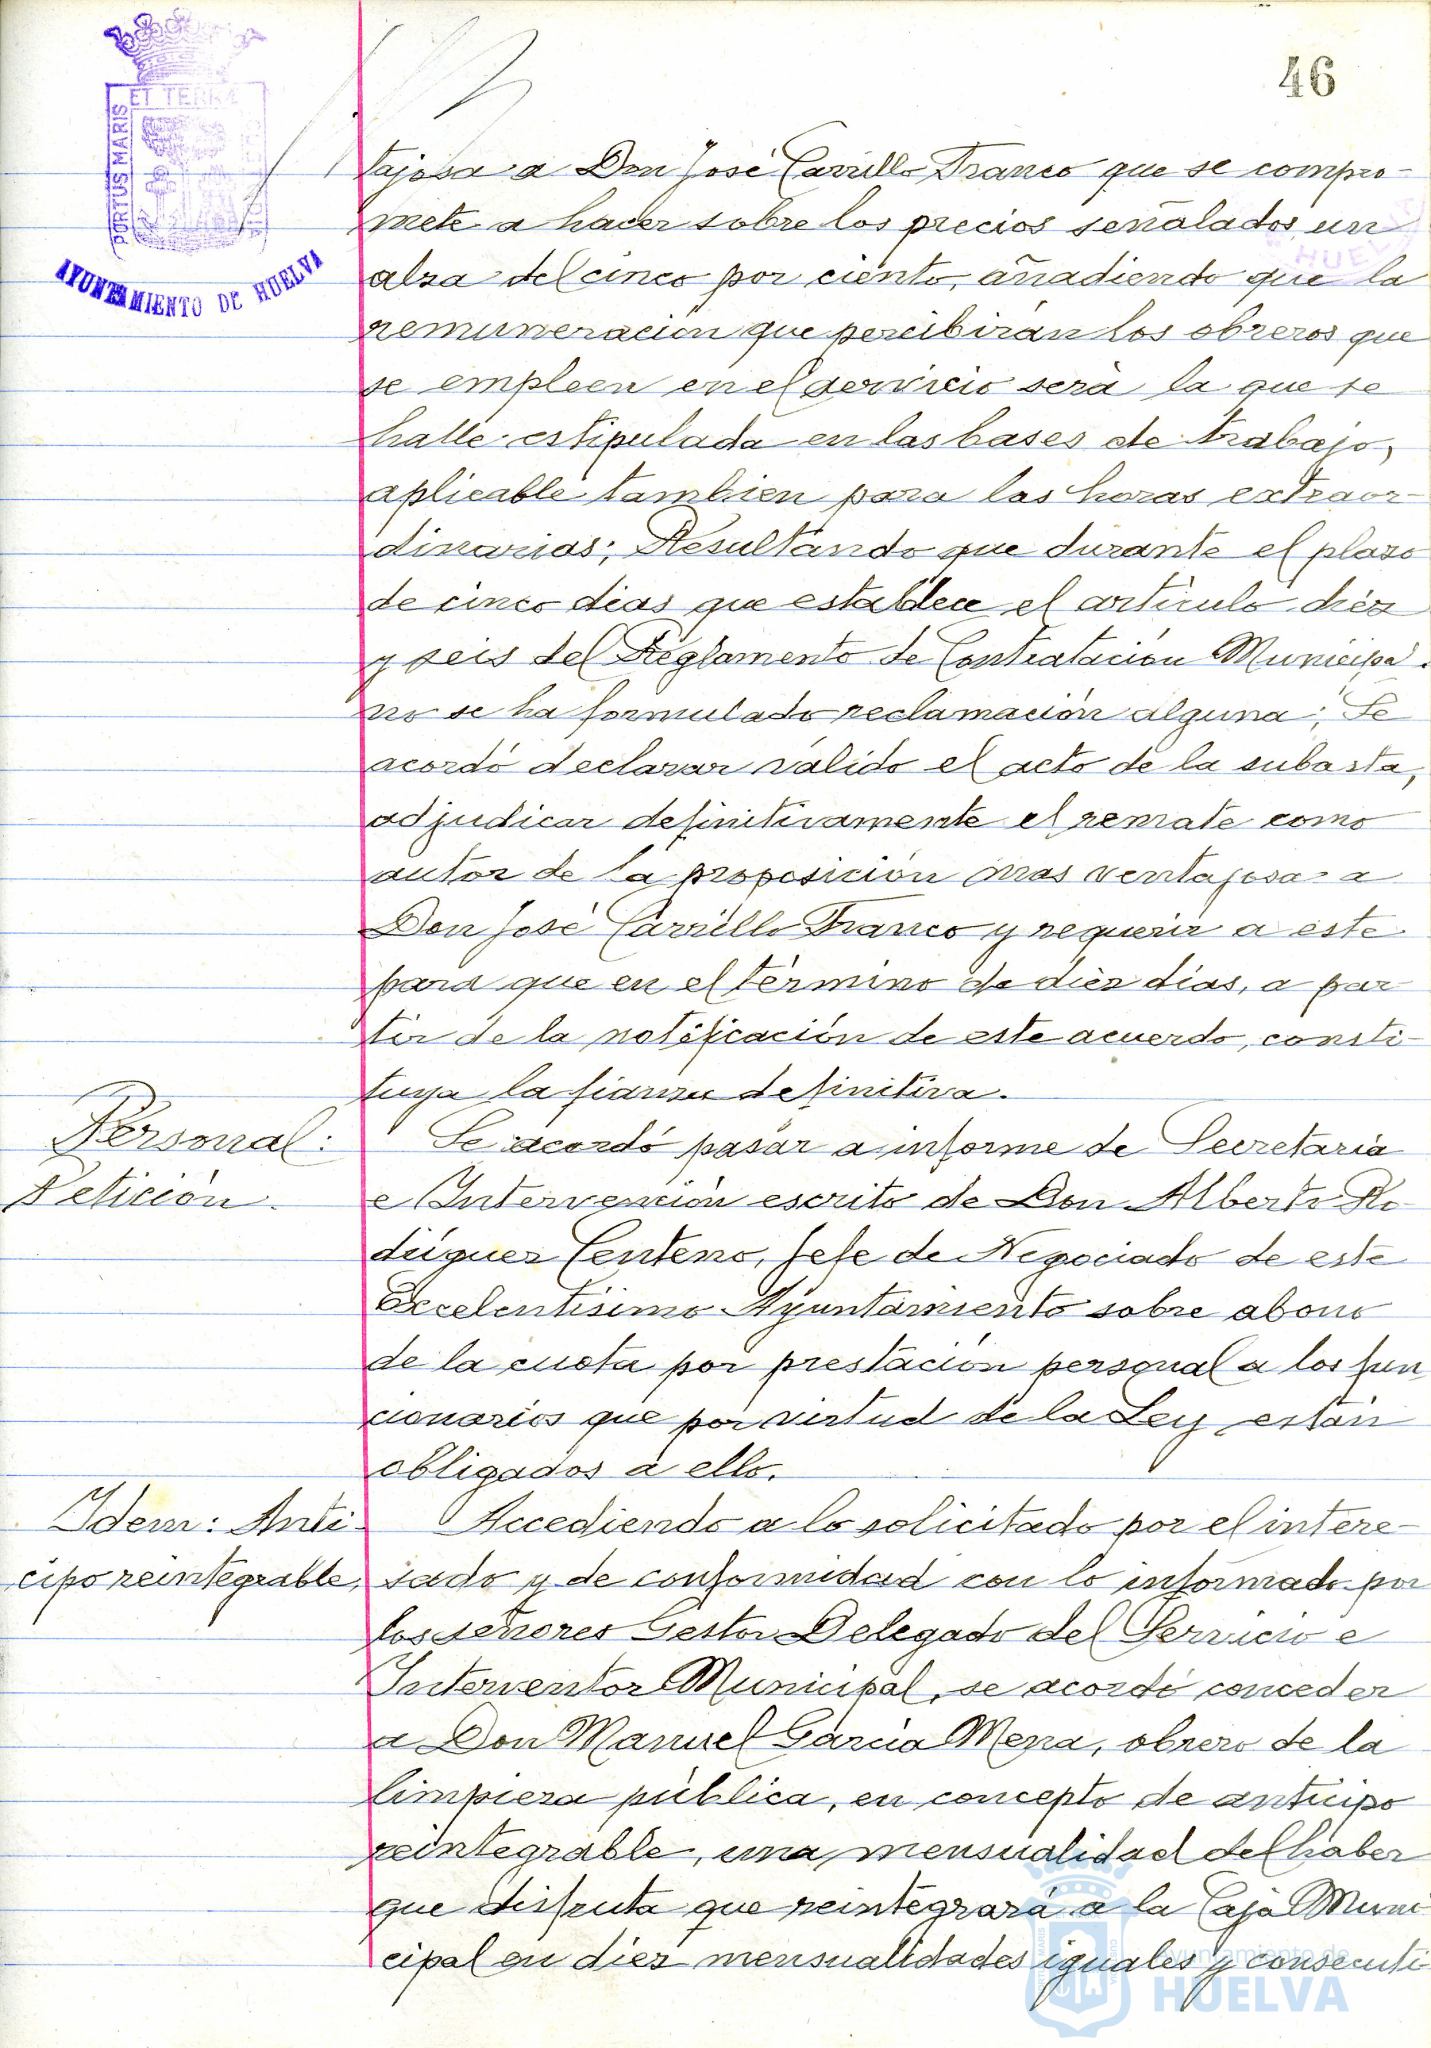 46
PORTUS MARIS
ET TERRÆ
AYUNTAMIENTO DE HUELVA
HUELVA
tajosa a Don José Carrillo Franco que se compro-
mete a hacer sobre los precios señalados un
alza del cinco por ciento, añadiendo que la
remuneración que percibirán los obreros que
se empleen en el servicio será la que se
halle estipulada en las bases de trabajo,
aplicable tambien para las horas extraor-
dinarias; Resultando que durante el plazo
de cinco dias que establece el artículo diéz
y seis del Reglamento de Contratación Municipal
no se ha formulado reclamación alguna; Se
acordó declarar válido el acto de la subasta,
adjudicar definitivamente el remate como
autor de la proposición mas ventajosa a
Don José Carrillo Franco y requerir a este
para que en el término de diéz días, a par
tir de la notificación de este acuerdo, consti-
tuya la fianza definitiva.
Personal:
Petición.
Se acordó pasar a informe de Secretaría
e Intervención escrito de Don Alberto Ro-
dríguez Centeno, Jefe de Negociado de este
Excelentísimo Ayuntamiento sobre abono
de la cuota por prestación personal a los fun
cionarios que por virtud de la Ley están
obligados a ello.
Idem: Anti-
cipo reintegrable,
Accediendo a lo solicitado por el intere-
sado y de conformidad con lo informado por
los señores Gestor Delegado del Servicio e
Interventor Municipal, se acordó conceder
a Don Manuel García Mena, obrero de la
limpieza pública, en concepto de anticipo
reintegrable, una mensualidad del haber
que disfruta que reintegrará a la Caja Muni
cipal en diez mensualidades iguales y consecuti-
Ayuntamiento de
HUELVA